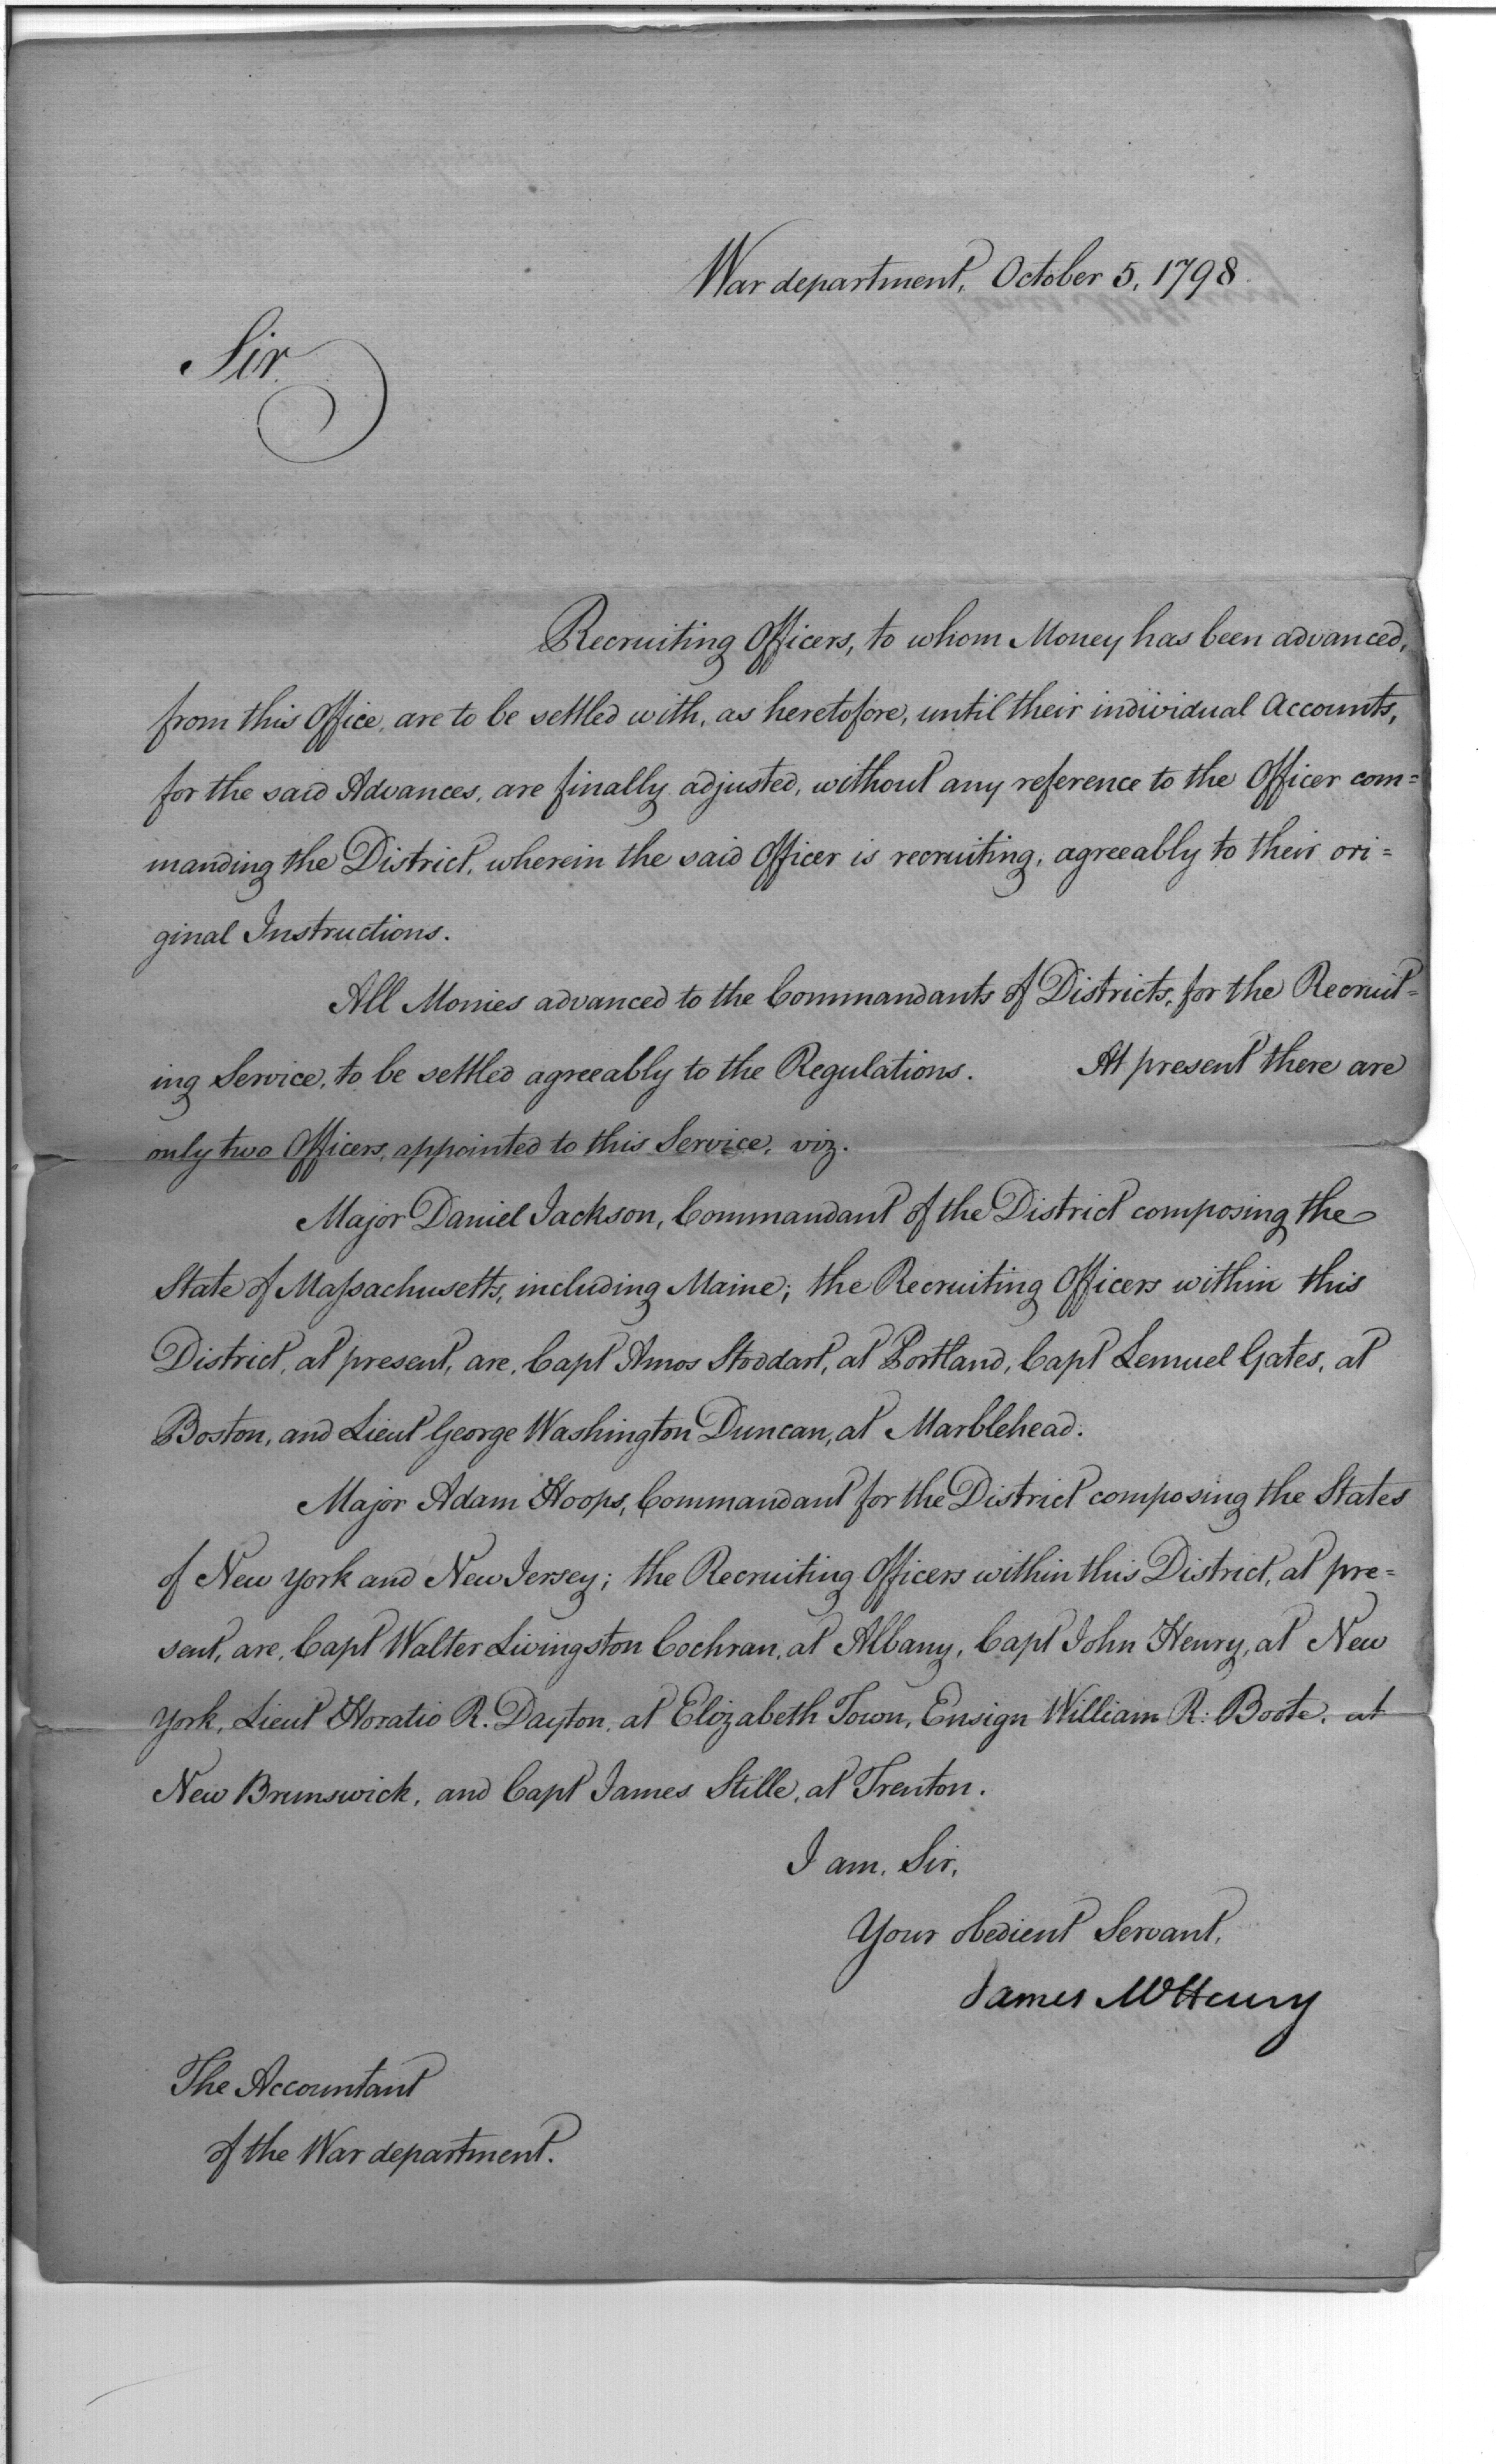 War department, October 5, 1798.
Sir
Recruiting Officers, to whom Money has been advanced,
from this Office, are to be settled with, as heretofore, until their individual Accounts,
for the said Advances, are finally adjusted, without any reference to the Officer com=
manding the District, wherein the said Officer is recruiting, agreeably to their ori=
ginal Instructions.
All Monies advanced to the Commandants of Districts, for the Recruit=
ing Service, to be settled agreeably to the Regulations. At present there are
only two Officers, appointed to this Service, viz.
Major Daniel Jackson, Commandant of the District composing the
State of Massachusetts, including Maine; the Recruiting Officers within this
District, at present, are, Capt Amos Stoddart, at Portland, Capt Lemuel Gates, at
Boston, and Lieut George Washington Duncan, at Marblehead.
Major Adam Hoops, Commandant for the District composing the States
of New York and New Jersey; the Recruiting Officers within this District, at pre=
sent, are, Capt Walter Livingston Cochran, at Albany, Capt John Henry, at New
York, Lieut Horatio R. Dayton, at Elizabeth Town, Ensign William R: Boote, at
New Brunswick, and Capt James Stille, at Trenton.
I am, Sir,
Your obedient Servant,
James McHenry
The Accountant
of the War department.